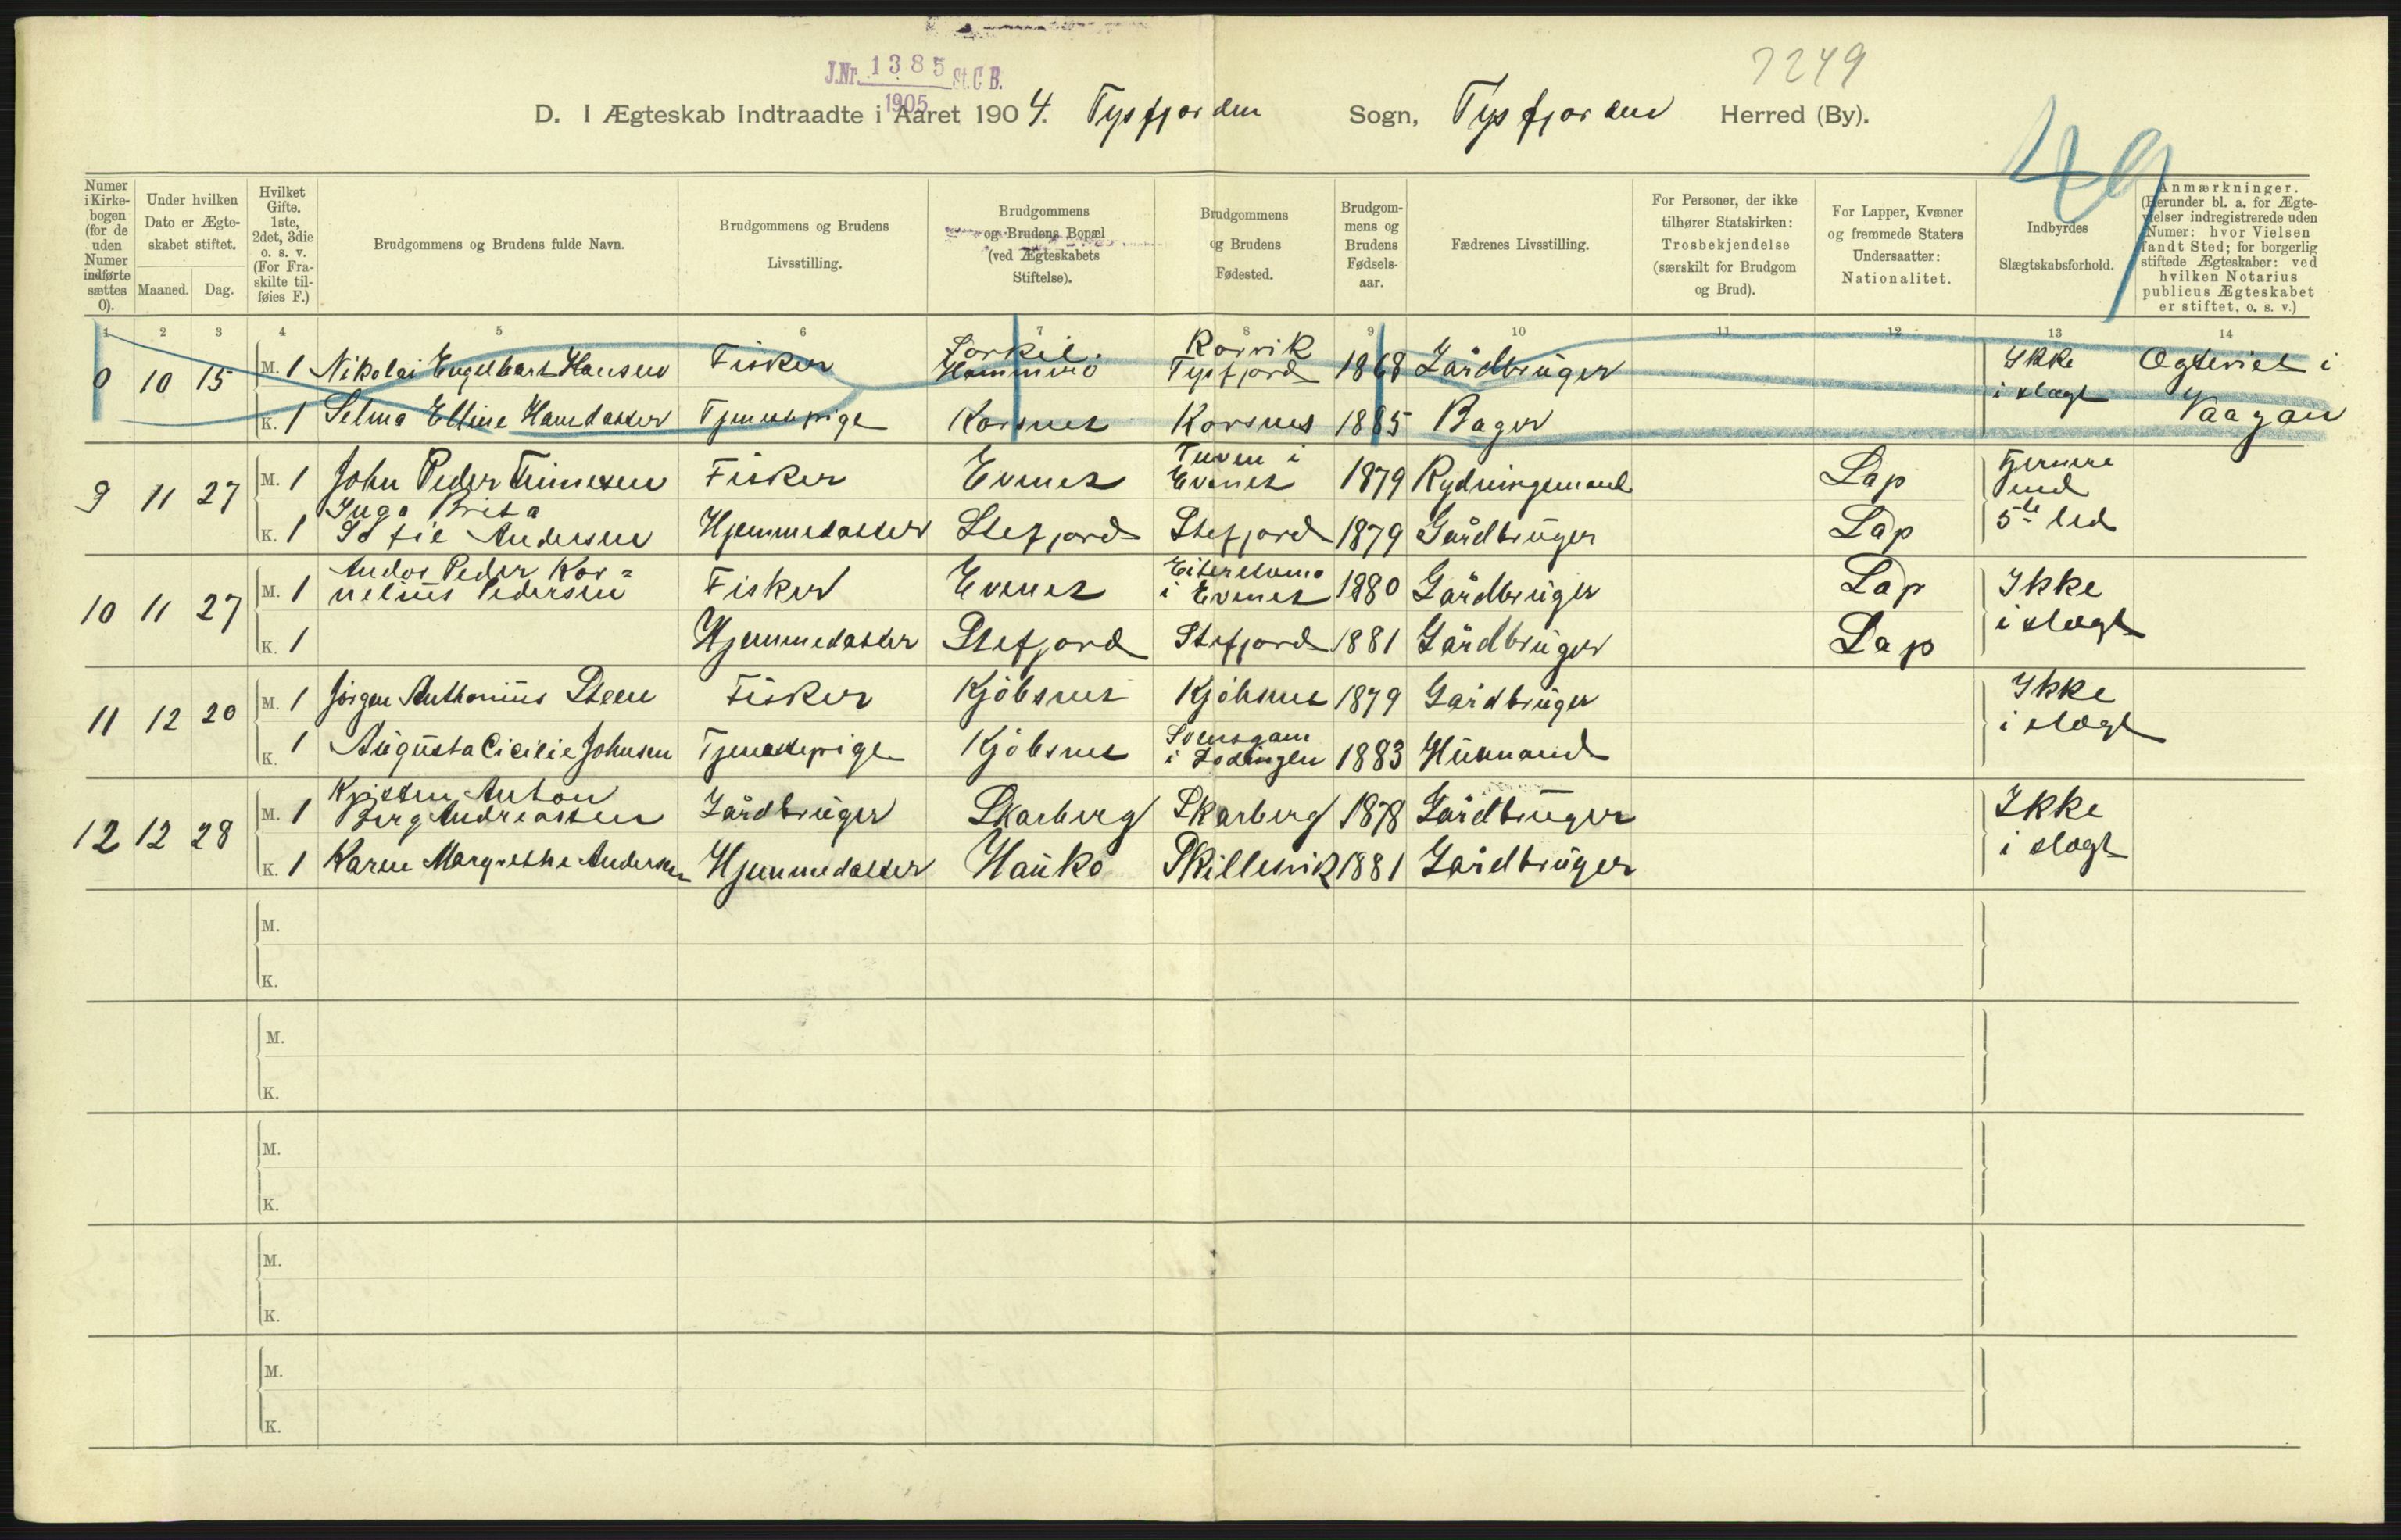 7249
J.Nr. 1385 St.C.B.
1905
D. I Ægteskab Indtraadte i Aaret 1904. Tysfjorden Sogn, Tysfjorden Herred (By).
49
Numer i Kirkebogen (for de uden Numer indførte sættes 0).
Under hvilken Dato er Ægteskabet stiftet.
Maaned. Dag.
Hvilket Gifte. 1ste, 2det, 3die o. s. v. (For Fraskilte tilføies F.)
Brudgommens og Brudens fulde Navn.
Brudgommens og Brudens Livsstilling.
Brudgommens og Brudens Bopæl (ved Ægteskabets Stiftelse).
Brudgommens og Brudens Fødested.
Brudgommens og Brudens Fødselsaar.
Fædrenes Livsstilling.
For Personer, der ikke tilhører Statskirken: Trosbekjendelse (særskilt for Brudgom og Brud).
For Lapper, Kvæner og fremmede Staters Undersaatter: Nationalitet.
Indbyrdes Slægtskabsforhold.
Anmærkninger. (Herunder bl. a. for Ægtevielser indregistrerede uden Numer: hvor Vielsen fandt Sted; for borgerlig stiftede Ægteskaber: ved hvilken Notarius publicus Ægteskabet er stiftet, o. s. v.)
1 2 3 4 5 6 7 8 9 10 11 12 13 14
0 10 15 M. 1 Nikolai Engelbart Hansen Fisker Korsvik Tysfjord 1868 Gårdbruger Ikke i slægt Ægteviet i Vaagan
K. 1 Selma Elline Hansdatter Tjenestepige Korsnes Korsnes 1885 Bager
9 11 27 M. 1 John Peder Fisker Evenes i Evenes 1879 Rydningsmand Lap Fjernere end 5te led
K. 1 Inga Brita Sofie Andersen Hjemmedatter Stefjord Stefjord 1879 Gårdbruger Lap
10 11 27 M. 1 Andor Peder Kornelius Pedersen Fisker Evenes i Evenes 1880 Gårdbruger Lap Ikke i slægt
K. 1 Hjemmedatter Stefjord Stefjord 1881 Gårdbruger Lap
11 12 20 M. 1 Jørgen Anthonius Steen Fisker Kjøbsnes Kjøbsnes 1879 Gårdbruger Ikke i slægt
K. 1 Augusta Cicilie Johnsen Tjenestepige Kjøbsnes i Lødingen 1883 Husmand
12 12 28 M. 1 Kristen Anton Berg Andreassen Gårdbruger Skarberg Skarberg 1878 Gårdbruger Ikke i slægt
K. 1 Karen Margrethe Andersen Hjemmedatter Haukø Skillevik 1881 Gårdbruger
M.
K.
M.
K.
M.
K.
M.
K.
M.
K.